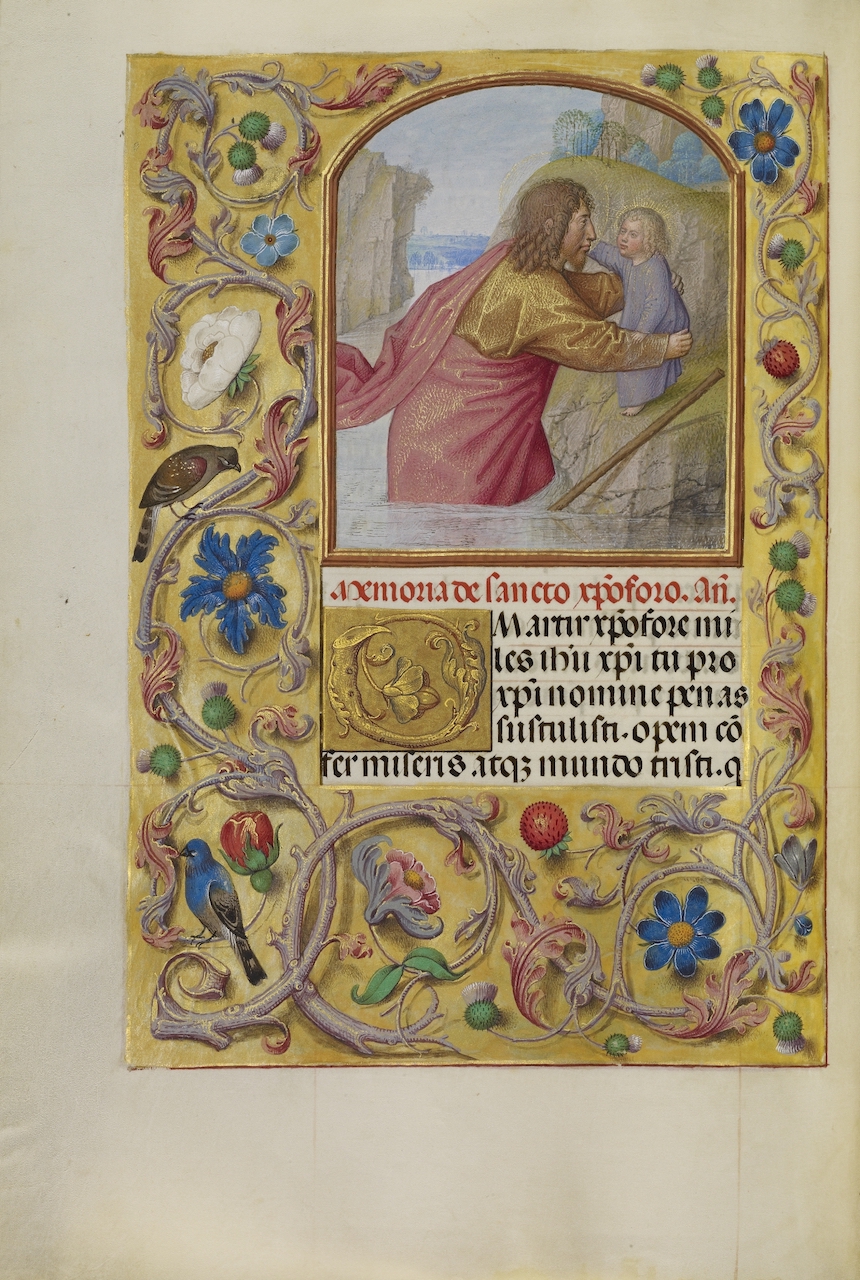 Memoria de sancto xp̄oforo. Añ.
O Martir xp̄ofore mi
les ih̄u xp̄i tu pro
xp̄i nomine penas
sustulisti. opem cō
fer miseris atqꝫ mundo tristi. q